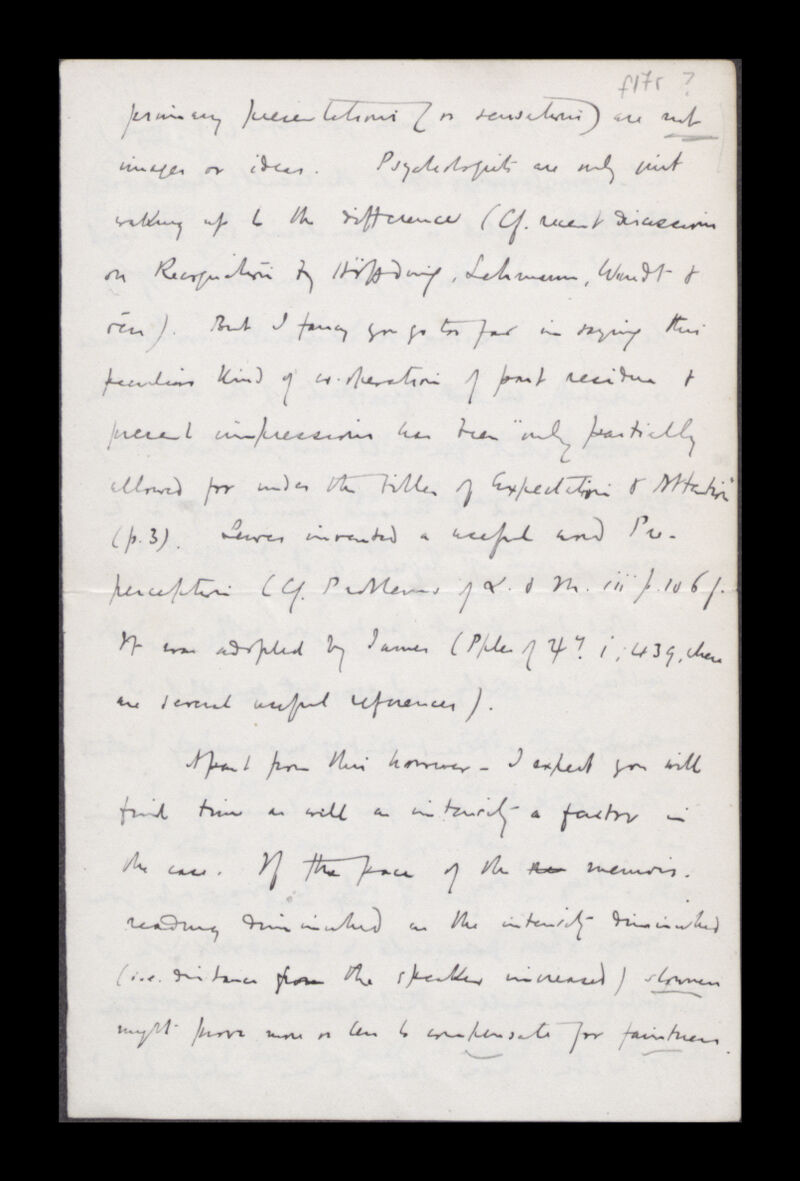 f17r ?
primary presentations (or sensations) are not
images or ideas. Psychologists are only just
waking up to the difference (Cf. recent discussions
on Recognition by Höffding, Lehmann, Wundt &
). But I fancy you go too far in saying this
peculiar kind of co-operation of past residua &
present impressions has been "only partially
allowed for under the titles of Expectation & Attention"
(p. 3). Lewes invented a useful word Pre-
perception (Cf. Problems of L. & M. iii p. 106 f.
It was adopted by James (Pples of Ψy. i, 439, where
are several useful references).
Apart from this however – I expect you will
find time as well as intensity a factor in
the case. If the pace of the memoir-
reading diminished as the intensity diminished
(i.e. distance from the speaker increased) slowness
might prove more or less to compensate for faintness.